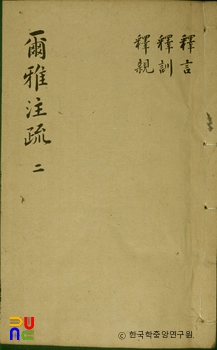 釋言
釋訓
釋親
爾雅注疏 二
ⓒ한국학중앙연구원